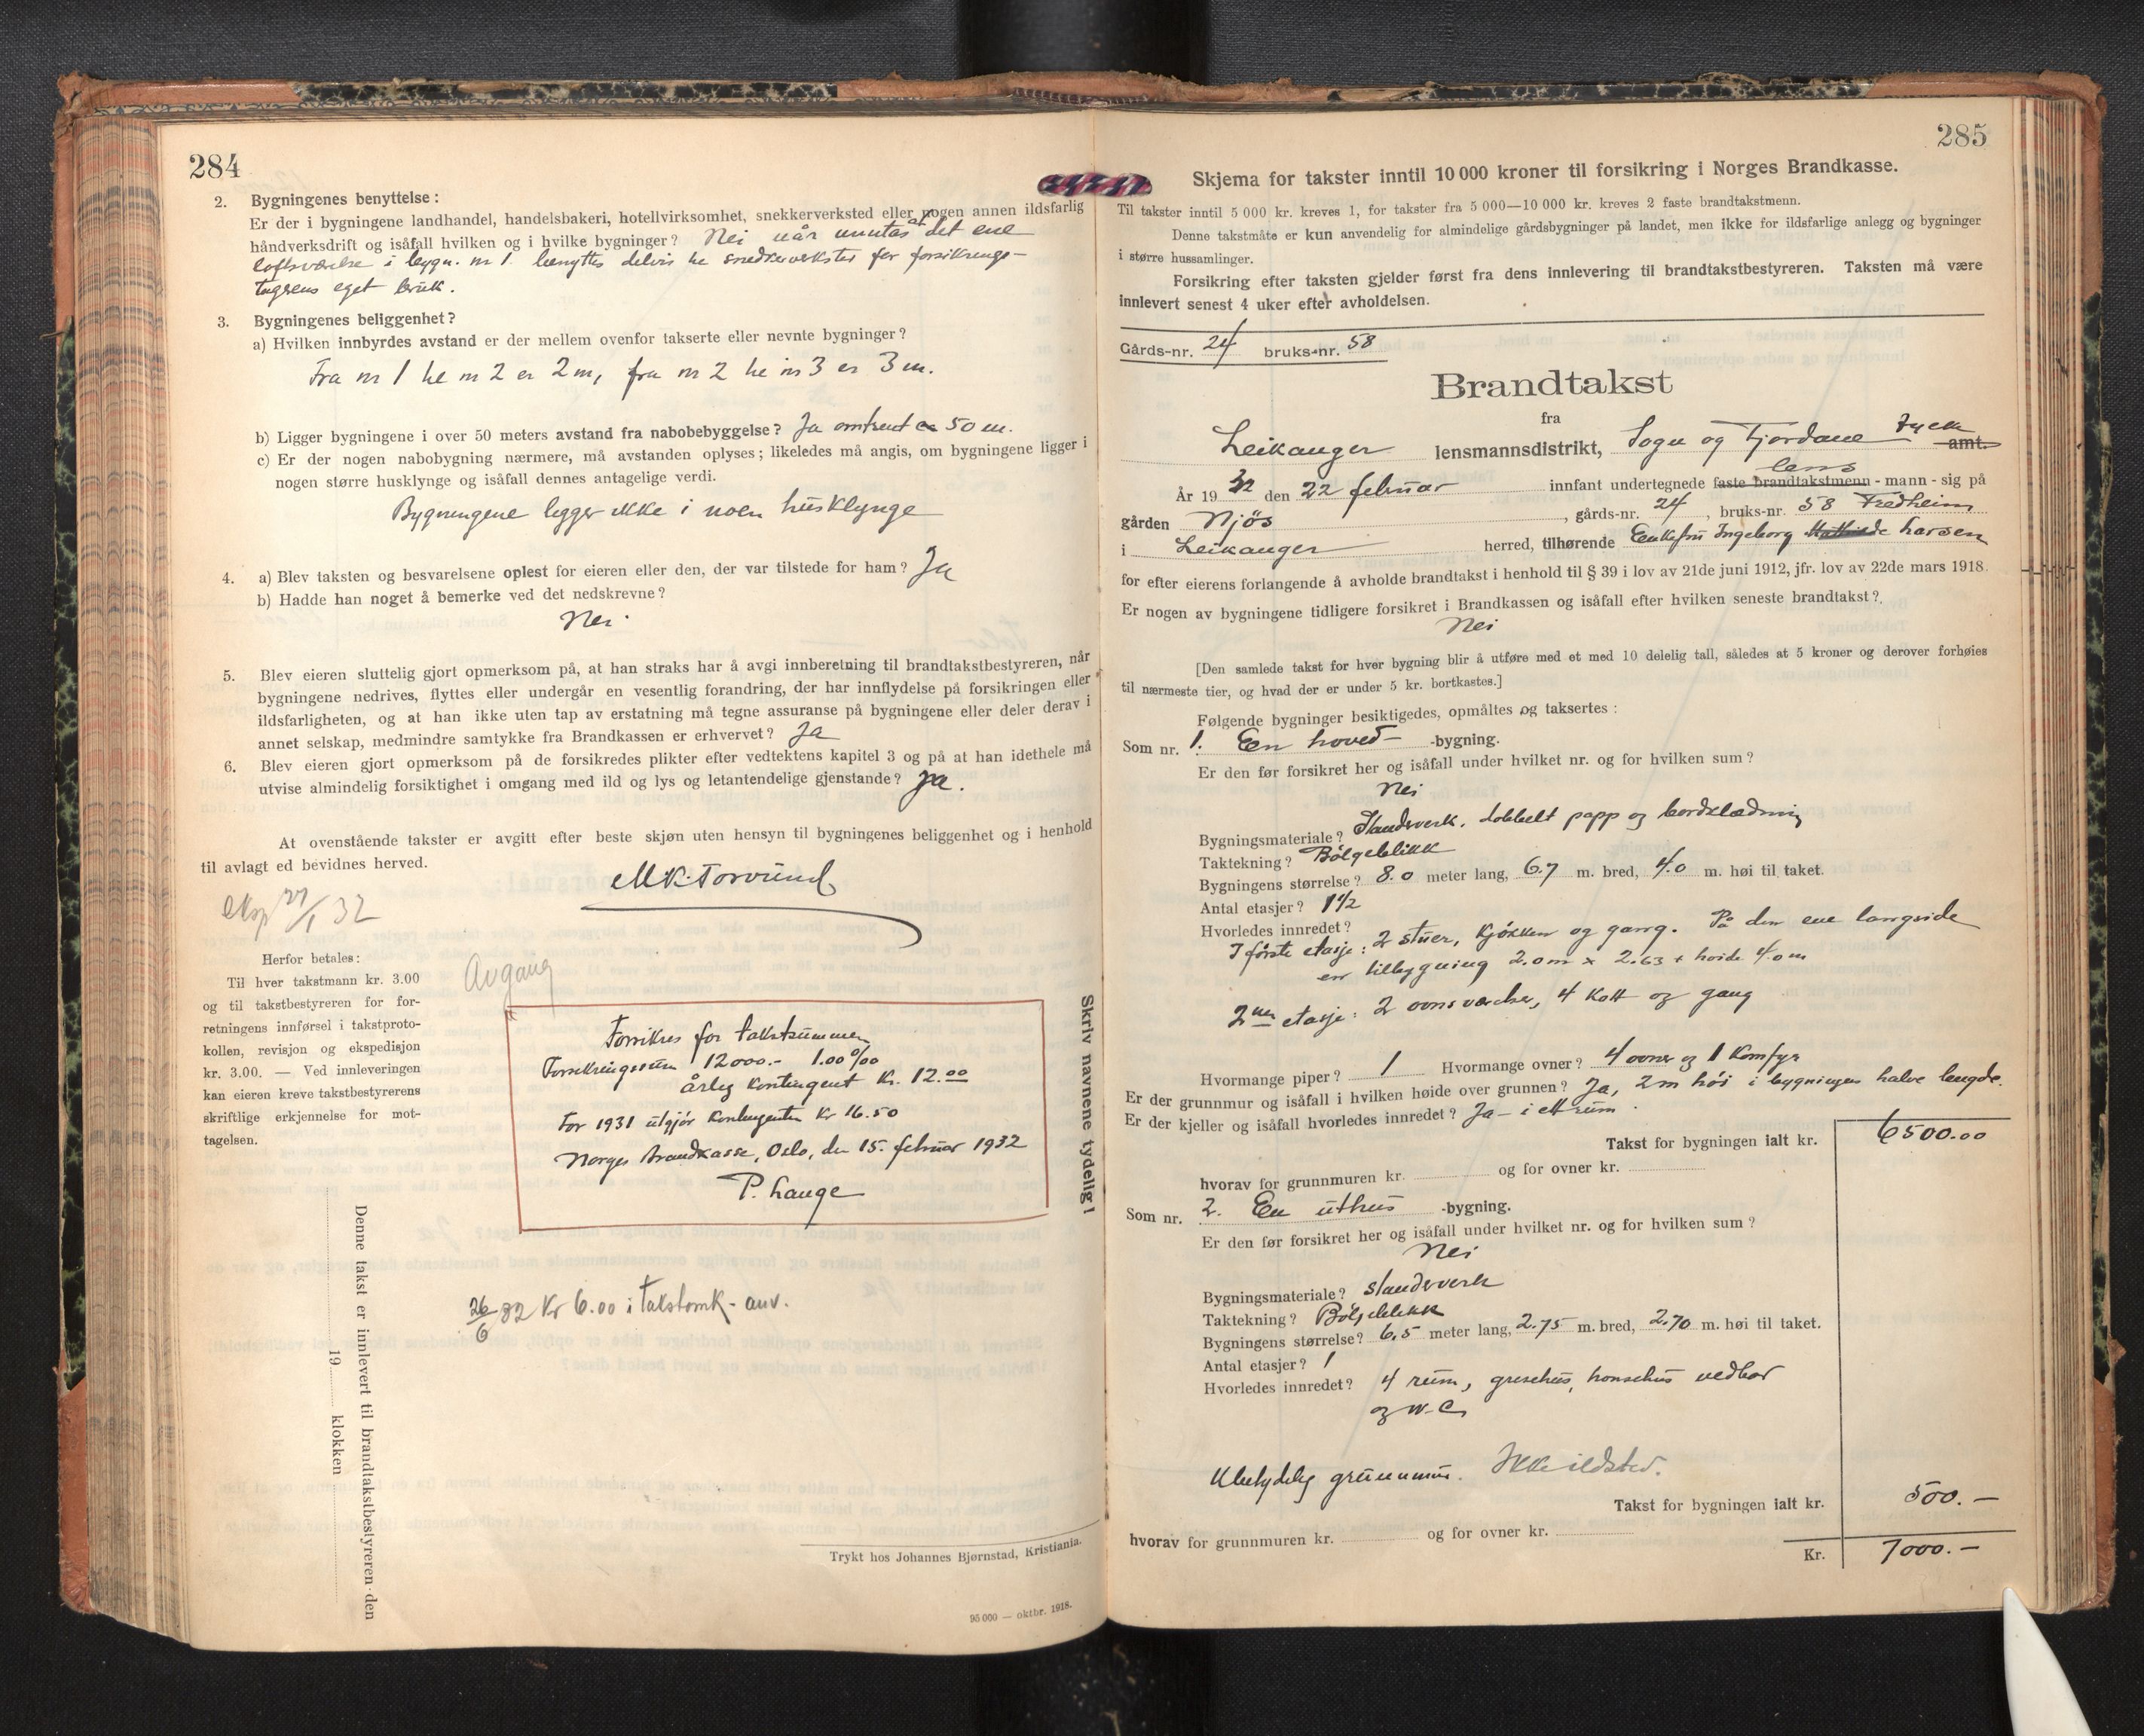 284
2. Bygningenes benyttelse:
Er der i bygningene landhandel, handelsbakeri, hotellvirksomhet, snekkerverksted eller nogen annen ildsfarlig
håndverksdrift og isåfall hvilken og i hvilke bygninger? Nei når unntas at det ene
loftsværelse i bygn. nr 1 benyttes delvis til snedkerverksted for forsikrings-
tagerens eget bruk.
3. Bygningenes beliggenhet?
a) Hvilken innbyrdes avstand er der mellem ovenfor takserte eller nevnte bygninger?
Fra nr 1 til nr 2 er 2 m, fra nr 2 til nr 3 er 3 m.
b) Ligger bygningene i over 50 meters avstand fra nabobebyggelse? Ja omtrent 50 m.
c) Er der nogen nabobygning nærmere, må avstanden oplyses; likeledes må angis, om bygningene ligger i
nogen større husklynge og isåfall dennes antagelige verdi.
Bygningene ligger ikke i noen husklynge
4. a) Blev taksten og besvarelsene oplest for eieren eller den, der var tilstede for ham? Ja
b) Hadde han noget å bemerke ved det nedskrevne?
Nei.
5. Blev eieren sluttelig gjort opmerksom på, at han straks har å avgi innberetning til brandtakstbestyreren, når
bygningene nedrives, flyttes eller undergår en vesentlig forandring, der har innflydelse på forsikringen eller
ildsfarligheten, og at han ikke uten tap av erstatning må tegne assuranse på bygningene eller deler derav i
annet selskap, medmindre samtykke fra Brandkassen er erhvervet? Ja
6. Blev eieren gjort opmerksom på de forsikredes plikter efter vedtektens kapitel 3 og på at han idethele må
utvise almindelig forsiktighet i omgang med ild og lys og letantendelige gjenstande? Ja.
At ovenstående takster er avgitt efter beste skjøn uten hensyn til bygningenes beliggenhet og i henhold
til avlagt ed bevidnes herved.
M K Torvund
eksp 27/1 32
Herfor betales:
Til hver takstmann kr. 3.00
og til takstbestyreren for for-
retningens innførsel i takstproto-
kollen, revisjon og ekspedisjon
kr. 3.00. — Ved innleveringen
kan eieren kreve takstbestyrerens
skriftlige erkjennelse for mot-
tagelsen.
Avgang
Forsikres for takstsummen
Forsikringssum 12000.- 1.00 ‰
årlig kontingent Kr. 12.00
For 1931 utgjør kontingenten Kr 16.50
Norges Brandkasse, Oslo, den 15. februar 1932
P. Lange
26/6 32 Kr 6.00 i takstomk- anv.
Denne takst er innlevert til brandtakstbestyreren den
19 klokken
Skriv navnene tydelig!
Trykt hos Johannes Bjørnstad, Kristiania.
95 000 — oktbr. 1918.
285
Skjema for takster inntil 10 000 kroner til forsikring i Norges Brandkasse.
Til takster inntil 5 000 kr. kreves 1, for takster fra 5 000—10 000 kr. kreves 2 faste brandtakstmenn.
Denne takstmåte er kun anvendelig for almindelige gårdsbygninger på landet, men ikke for ildsfarlige anlegg og bygninger
i større hussamlinger.
Forsikring efter taksten gjelder først fra dens innlevering til brandtakstbestyreren. Taksten må være
innlevert senest 4 uker efter avholdelsen.
Gårds-nr. 24 bruks-nr. 58
Brandtakst
fra
Leikanger lensmannsdistrikt, Sogn og Fjordane fylke amt.
År 19 32 den 22 februar innfant undertegnede faste brandtakstmenn lens - mann - sig på
gården Njøs, gårds-nr. 24, bruks-nr. 58 Fredheim
i Leikanger herred, tilhørende Enkefru Ingeborg Larsen
for efter eierens forlangende å avholde brandtakst i henhold til § 39 i lov av 21de juni 1912, jfr. lov av 22de mars 1918.
Er nogen av bygningene tidligere forsikret i Brandkassen og isåfall efter hvilken seneste brandtakst?
Nei
[Den samlede takst for hver bygning blir å utføre med et med 10 delelig tall, således at 5 kroner og derover forhøies
til nærmeste tier, og hvad der er under 5 kr. bortkastes.]
Følgende bygninger besiktigedes, opmåltes og taksertes:
Som nr. 1. En hoved- -bygning.
Er den før forsikret her og isåfall under hvilket nr. og for hvilken sum?
Nei
Bygningsmateriale? Standsverk. dobbelt papp og bordklædning
Taktekning? Bølgeblikk
Bygningens størrelse? 8.0 meter lang, 6.7 m. bred, 4.0 m. høi til taket.
Antal etasjer? 1 1/2
Hvorledes innredet?
I første etasje: 2 stuer, kjøkken og gang. På den ene langside
en tilbygning 2.0 m x 2.63 + høide 4.0 m
2nen etasje: 2 ovnsværelser, 4 kott og gang
Hvormange piper? 1 Hvormange ovner? 4 ovner og 1 komfyr
Er der grunnmur og isåfall i hvilken høide over grunnen? Ja, 2 m høi i bygningens halve lengde.
Er der kjeller og isåfall hvorledes innredet? Ja - i ett rum.
Takst for bygningen ialt kr. 6500.00
hvorav for grunnmuren kr. og for ovner kr.
Som nr. 2. En uthus -bygning.
Er den før forsikret her og isåfall under hvilket nr. og for hvilken sum?
Nei
Bygningsmateriale? standsverk
Taktekning? Bølgeblikk
Bygningens størrelse? 6.5 meter lang, 2.75 m. bred, 2.70 m. høi til taket.
Antal etasjer? 1
Hvorledes innredet? 4 rum, grisehus, hønsehus vedbod
og W.C.
Ubetydelig grunnmur. Ikke ildsted.
Takst for bygningen ialt kr. 500.—
hvorav for grunnmuren kr. og for ovner kr.
Kr. 7000.—